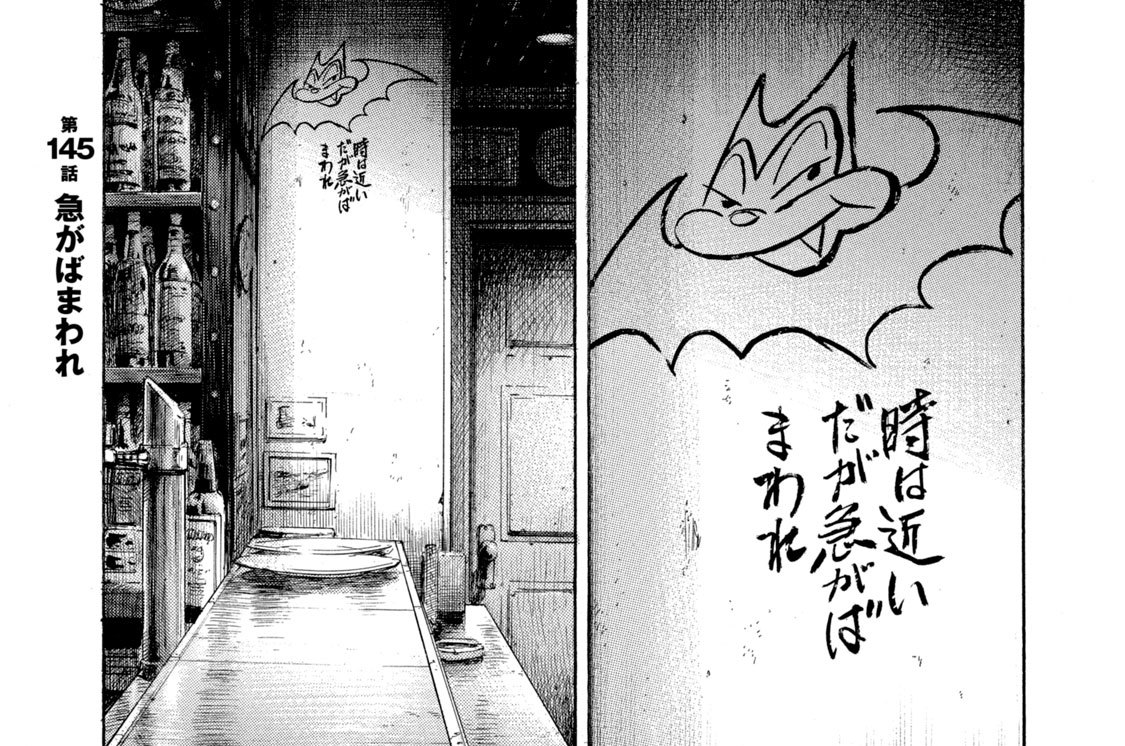 時は近い
だが急がば
まわれ
時は近い
だが急がば
まわれ
第145話 急がばまわれ